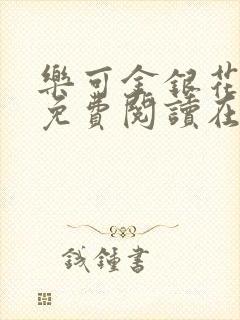 樂可金銀花
免費閱讀在
錢鍾書